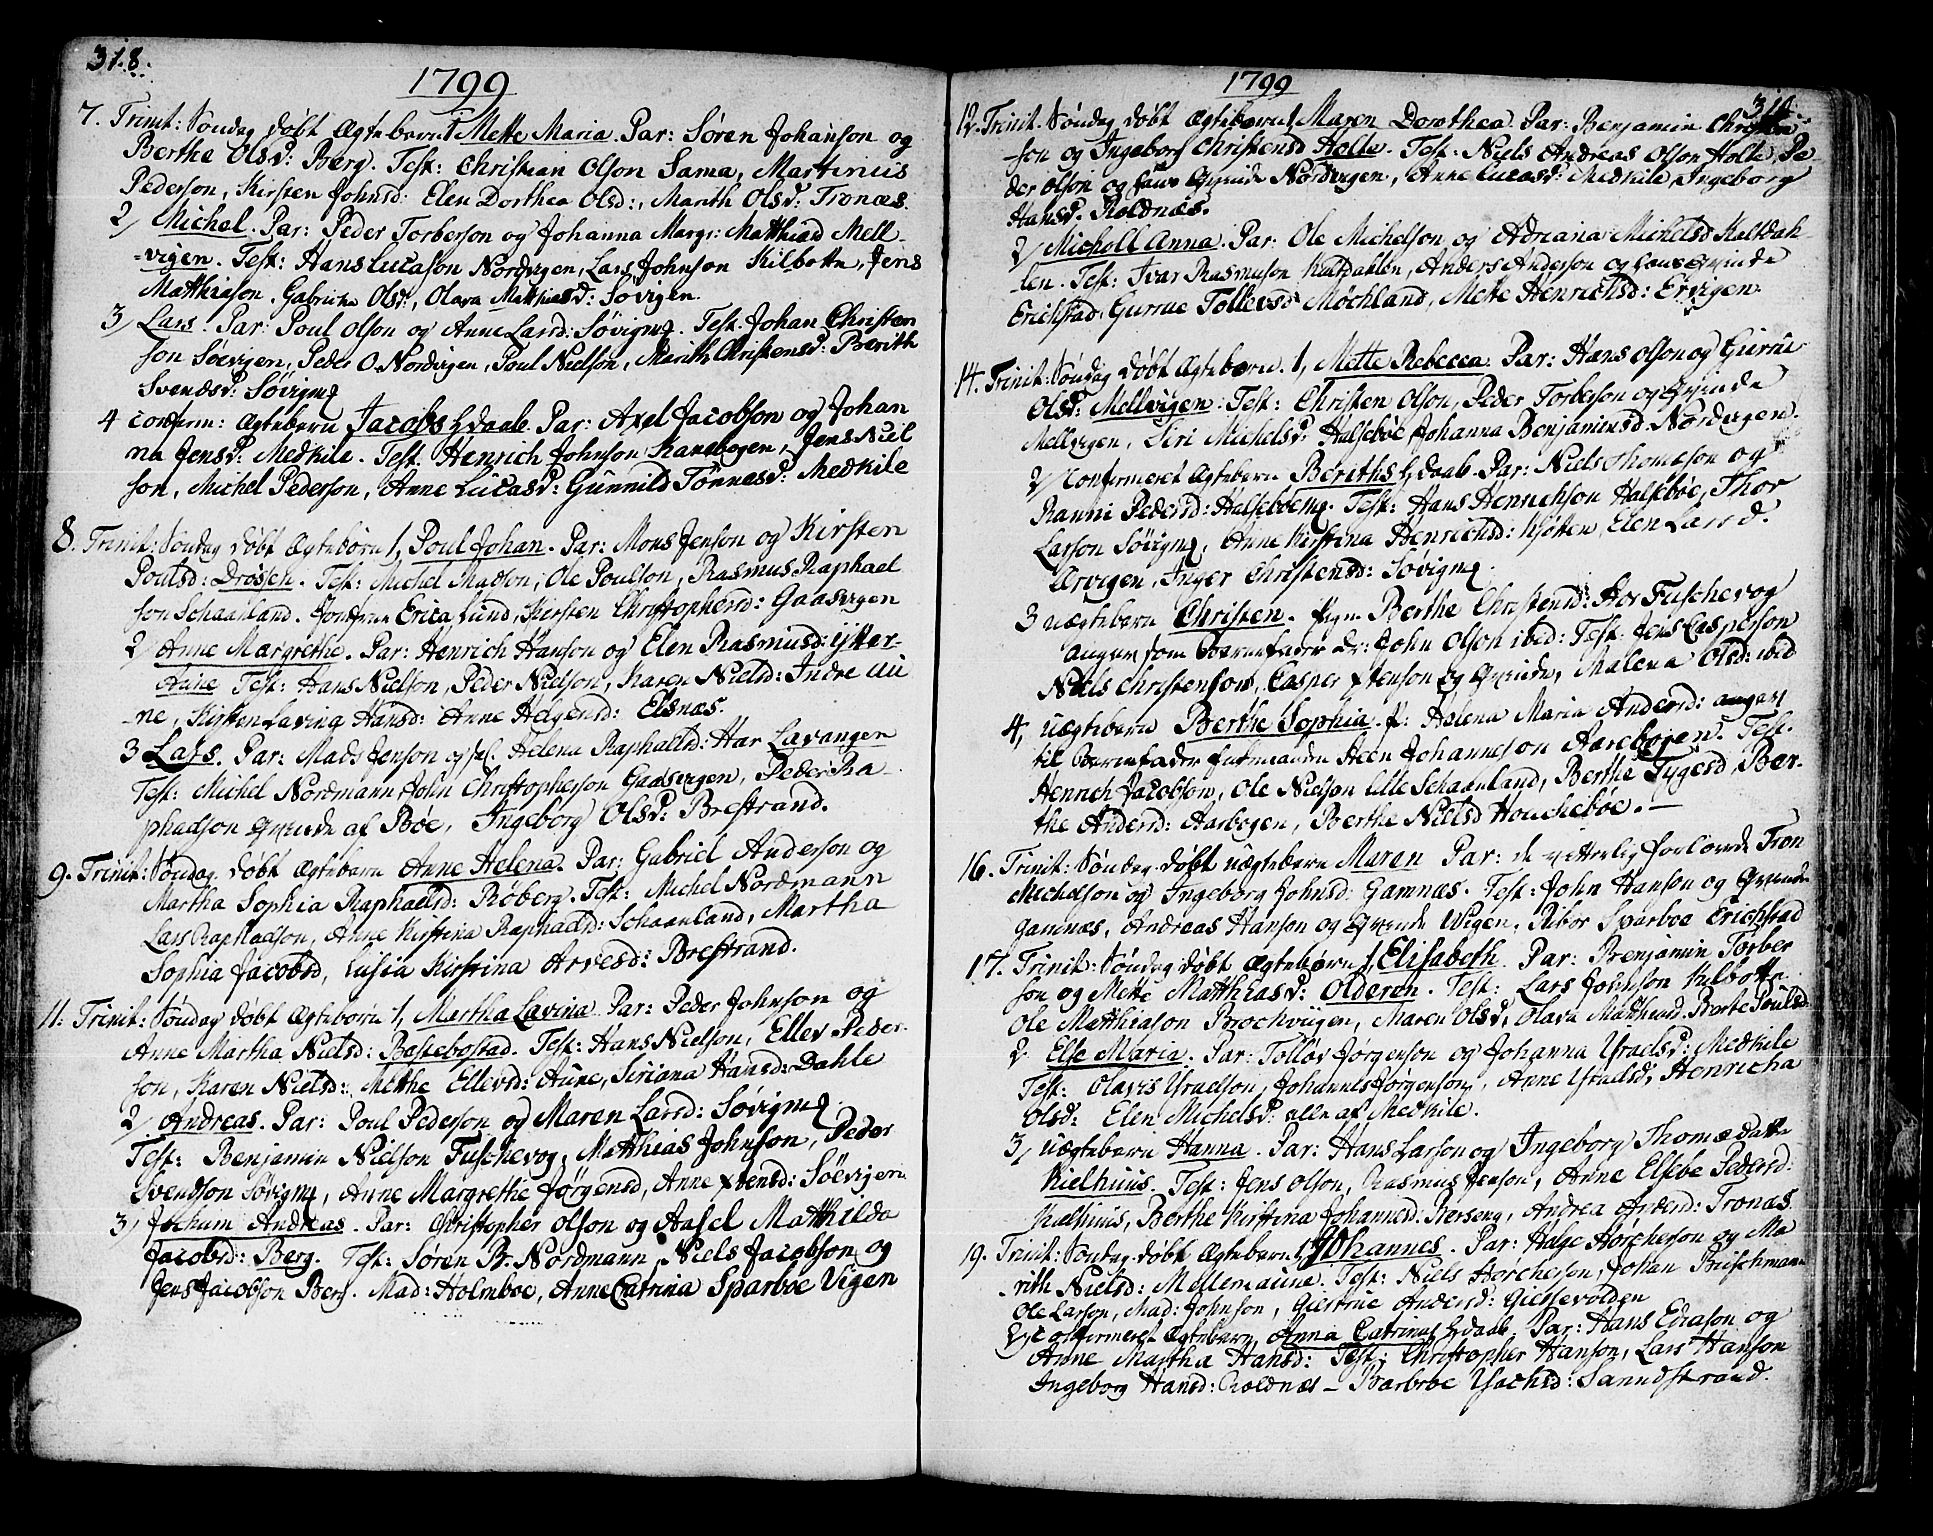 318.
1799
7. Trinit: Søndag døbt Ægtebarn 1 Mette Maria. Par: Søren Johanson og
Berthe Olsd: Berg. Test: Christian Olson Sama, Martinus
Pederson, Kirsten Johnsd: Elen Dorthea Olsd:, Marith Olsd: Tronæs.
2/ Michel. Par: Peder Torberson og Johanna Margr: Matthiæd Mell-
-vigen. Test: Hans Lucason Nordvigen, Lars Johnson Kilbotn, Jens
Matthiason. Olsd:, Olava Matthiasd: Søvigen.
3/ Lars. Par: Poul Olson og Anne Larsd: Søvigen. Test: Johan Christen
son Søevigen, Peder O. Nordvigen, Poul Nielson, Marith Christensd: Berith
Svendsd: Søvigen
4 confirm: Ægtebarn Jacobs Hdaab. Par: Axel Jacobson og Johan
na Jensd: Medkile. Test: Henrich Johnson Kanebogen, Jens Niel
son, Michel Pederson, Anne Lucasd: Gunnild Tønnesd: Medkile
8. Trinit: Søndag døbt Ægtebørn 1, Poul Johan. Par: Mons Jenson og Kirsten
Poulsd: Drøssen. Test: Michel Madson, Ole Poulson, Rasmus Raphael
son Schaanland. Jomfrue Erica Lund, Kirsten Christophersd: Gaasvigen
2/ Anne Margrethe. Par: Henrich Hanson og Elen Rasmusd: Ytter-
Aune Test: Hans Nielson, Peder Nielson, Karen Nielsd: Indre Au
-ne, Kirsten Lavina Hansd: Anne Helgensd: Elsnæs.
3 Lars. Par: Mads Jenson og Helena Raphaelsd: Har Lavangen
Test: Michel Nordmann, John Christopherson Gaasvigen, Peder Ra
phaelson qvinde af Bøe, Ingeborg Olsd: Brestrand.
9. Trinit: Søndag døbt Ægtebarn Anne Helena. Par: Gabriel Anderson og
Martha Sophia Raphaelsd: Røberg. Test: Michel Nordmann
Lars Raphaelson, Anne Kirstina Raphaelsd: Schaanland, Martha
Sophia Jacobsd, Lusia Kirstina Arvesd: Brestrand.
11. Trinit: Søndag døbt Ægtebørn 1, Martha Lavina. Par: Peder Johnson og
Anne Martha Nielsd: Bastebostad. Test: Hans Nielson, Ellev Peder-
son, Karen Nielsd: Methe Ellevsd: Aune, Siriana Hansd: Dahle
2/ Andreas. Par: Poul Pederson og Maren Larsd: Søvigen.
Test: Benjamin Nielson Fuschevog, Matthias Johnson, Peder
Svendson Søvigen, Anne Margrethe Jørgensd, Anne Xtensd: Søevigen
3/ Jochum Andreas. Par: Christopher Olson og Aasel Matthilda
Jacobsd: Berg. Test: Søren Br. Nordmann, Niels Jacobson og
Jens Jacobson Berg. Mad: Holmboe, Anne Catrina Sparboe Vigen
1799
319.
12. Trinit: Søndag døbt Ægtebørn 1 Maren Dorothea. Par: Benjamin Christen
-son og Ingeborg Christensd Holte. Test: Niels Andreas Olson Holte, Pe-
der Olson og hans Qvinde Nordvigen, Anne Lucasd: Medkile, Ingeborg
Hansd. Roldnæs.
2/ Micholl Anna. Par: Ole Michelson og Adriana Michelsd Kaltdah-
len. Test: Ivar Rasmuson Kaltdahlen, Anders Anderson og hans Qvinde
Erichstad, Gurrue Tollevsd Møchland, Mette Henrichsd: Ervigen.
14. Trinit: Søndag døbt Ægtebørn. 1, Mette Rebecca. Par: Hans Olson og Gurrue
Olsd: Mellvigen. Test: Christen Olson, Peder Torberson og Qvinde
Mellvigen, Siri Michelsd: Halsebøe, Johanna Benjaminsd Nordvigen.
2/ Confirmeret Ægtebarn Beriths Hdaab. Par: Niels Thomæson og
Ranni Pedersd: Halsebøen. Test: Hans Henrichson Halsebøe, Thor
Larson Søvigen, Anne Kirstina Henrichsd: Kjøtten, Elen Larsd.
Ærvigen, Inger Christensd: Søvigen.
3 uægtebarn Christen. Berthe Christensd: Hos Fuschevog
angav som Barnefader Dr: John Olson ibid: Test: Jens Casperson
Niels Christenson, Casper Xstenson og Qvinde, Malena Olsd: ibid
4, uægtebarn Berthe Sophia. P: Helena Maria Andersd: angav
til Barnefader Steen Johanneson Aarebogen. Test.
Henrich Jacobson, Ole Nielson Lille Schaanland, Berthe Tygesd, Ber-
the Andersd: Aarbogen, Berthe Nielsd Houchebøe.—
16. Trinit: Søndag døbt uægtebarn Maren Par: de forlovede Tron
Michelson og Ingeborg Johnsd: Gamnæs. Test: John Hanson og Qvinde
Gamnæs, Andreas Hanson og Qvinde Wigen, Riber Sparboe Erichstad
17. Trinit: Søndag døbt Ægtebørn 1. Elisabeth. Par: Benjamin Torber
son og Mette Matthiasd: Olderen. Test: Lars Johnson Kilbottn
Ole Matthiason Brochviigen, Maren Olsd, Olava Matthiasd. Berte Poulsd
2. Else Maria. Par: Tolløv Jørgenson og Johanna Israelsd: Medkile
Test: Olavis Israelson, Johannes Jørgenson, Anne Israelsd, Henricha
Olsd: Elen Michelsd: alle af Medkile.
3/ uægtebarn Hanna. Par: Hans Larson og Ingeborg Thomædatter
Kielhuus. Test: Jens Olson, Rasmus Jenson, Anne Elsebe Pedersd:
Kielhuus, Berthe Kirstina Johannesd: Andrea Andersd: Tronæs.
19. Trinit: Søndag døbt Ægtebørn 1, Johannes. Par: Halge Horcherson og Ma
rith Nielsd: Mellemaune. Test: Niels Horcheson, Johan Buschmann
Ole Larson, Mad: Johnson, Giertrue Andersd: Giessevolden
2, confirmeret Ægtebarn, Anna Catrinas Hdaab. Par: Hans Edrason og
Anne Martha Hansd: Test: Christopher Hanson, Lars Hanson
Ingeborg Hansd: Roldnæs – Barbroe Isachsd: Sanndstrand.